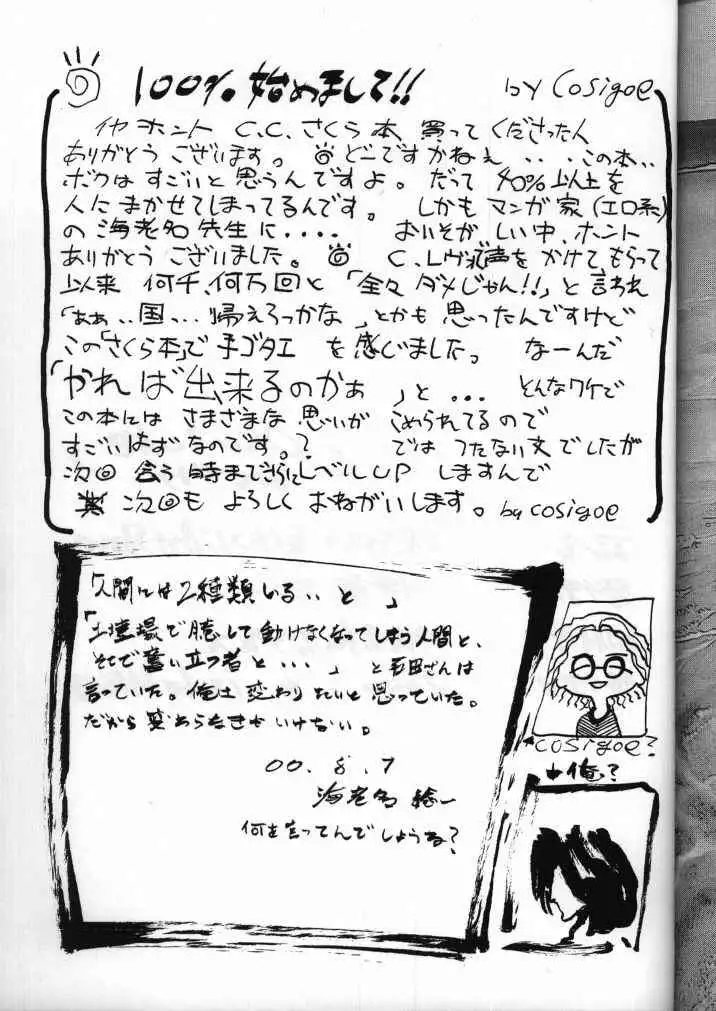 100% 始めまして!!
by Cosigoe
イヤ ホント C.C.さくら本 買ってくださった人
ありがとうございます。 どーですかねぇ...この本..
ボクはすごいと思うんですよ。だって 40%以上を
人にまかせてしまってるんです。 しかもマンガ家(エロ系)
の海老名先生に.... おいそがしい中、ホント
ありがとうございました。 C.Lヴ 声をかけてもらって
以来 何千、何万回と「全々ダメじゃん!!」と言われ
「ああ..国...帰えろっかな」とかも思ったんですけど
この「さくら本」で手ゴタエ を感じました。 なーんだ
「やれば出来るのかぁ」と... とんなワケで
この本には さまざまな思いが こめられてるので
すごいはずなのです。? では つたない文でしたが
次回 会う時までさらにレベルUP しますんで
次回も よろしく おねがいします。 by cosigoe
「人間には2種類いる..と」
「土壇場で臆して動けなくなってしまう人間と、
そこで奮い立つ者と...」 と 田さんは
言っていた。俺は変わりたいと思っていた。
だから変わらなきゃいけない。
00.8.7
海老名 一
何を言ってんでしょうね?
cosigoe?
俺?